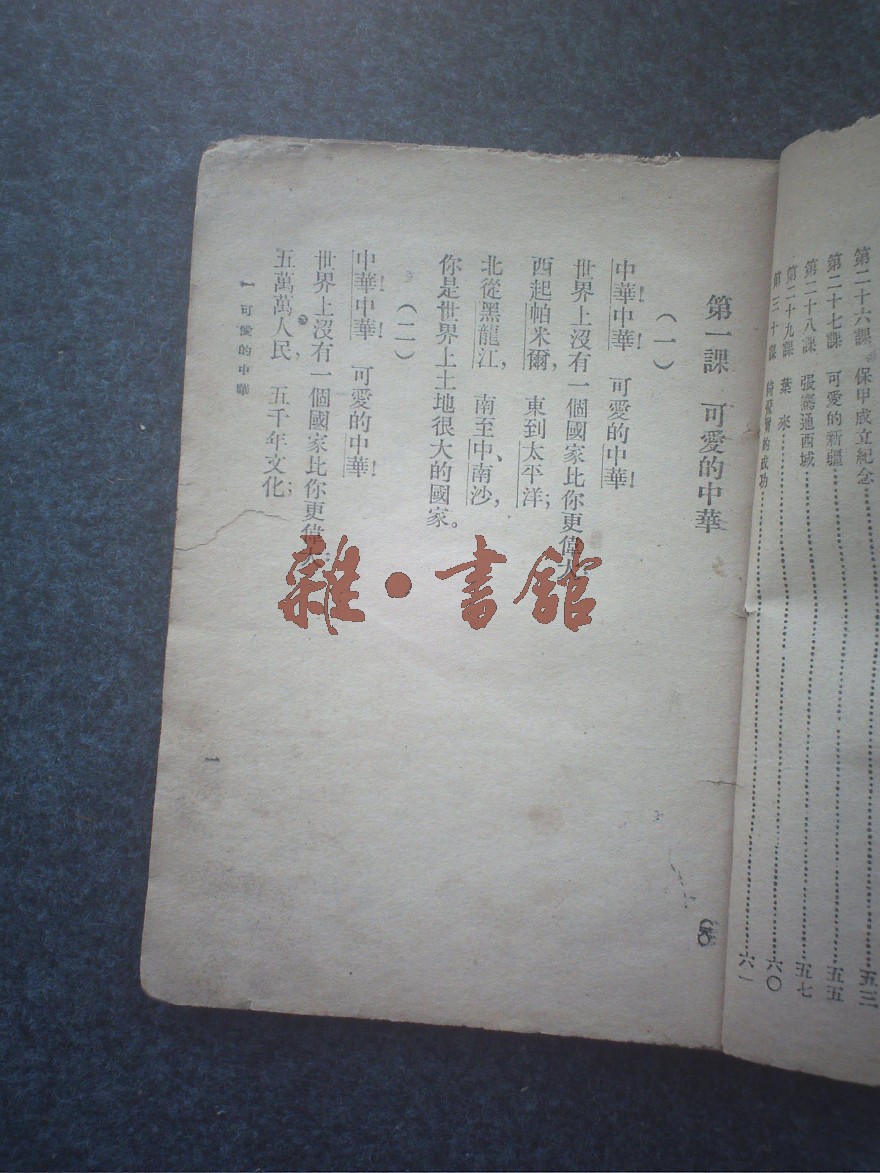 第二十六課 保甲成立紀念 五三
第二十七課 可愛的新疆 五五
第二十八課 張騫通西域 五七
第二十九課 葉 來 六〇
第三十課 的成功 六一
第一課 可愛的中華
(一)
中華!中華!可愛的中華!
世界上沒有一個國家比你更偉大
西起帕米爾,東到太平洋;
北從黑龍江,南至中、南沙,
你是世界上土地很大的國家。
(二)
中華!中華!可愛的中華!
世界上沒有一個國家比你更偉大:
五萬萬人民,五千年文化;
一 可愛的中華
一
雜·書館